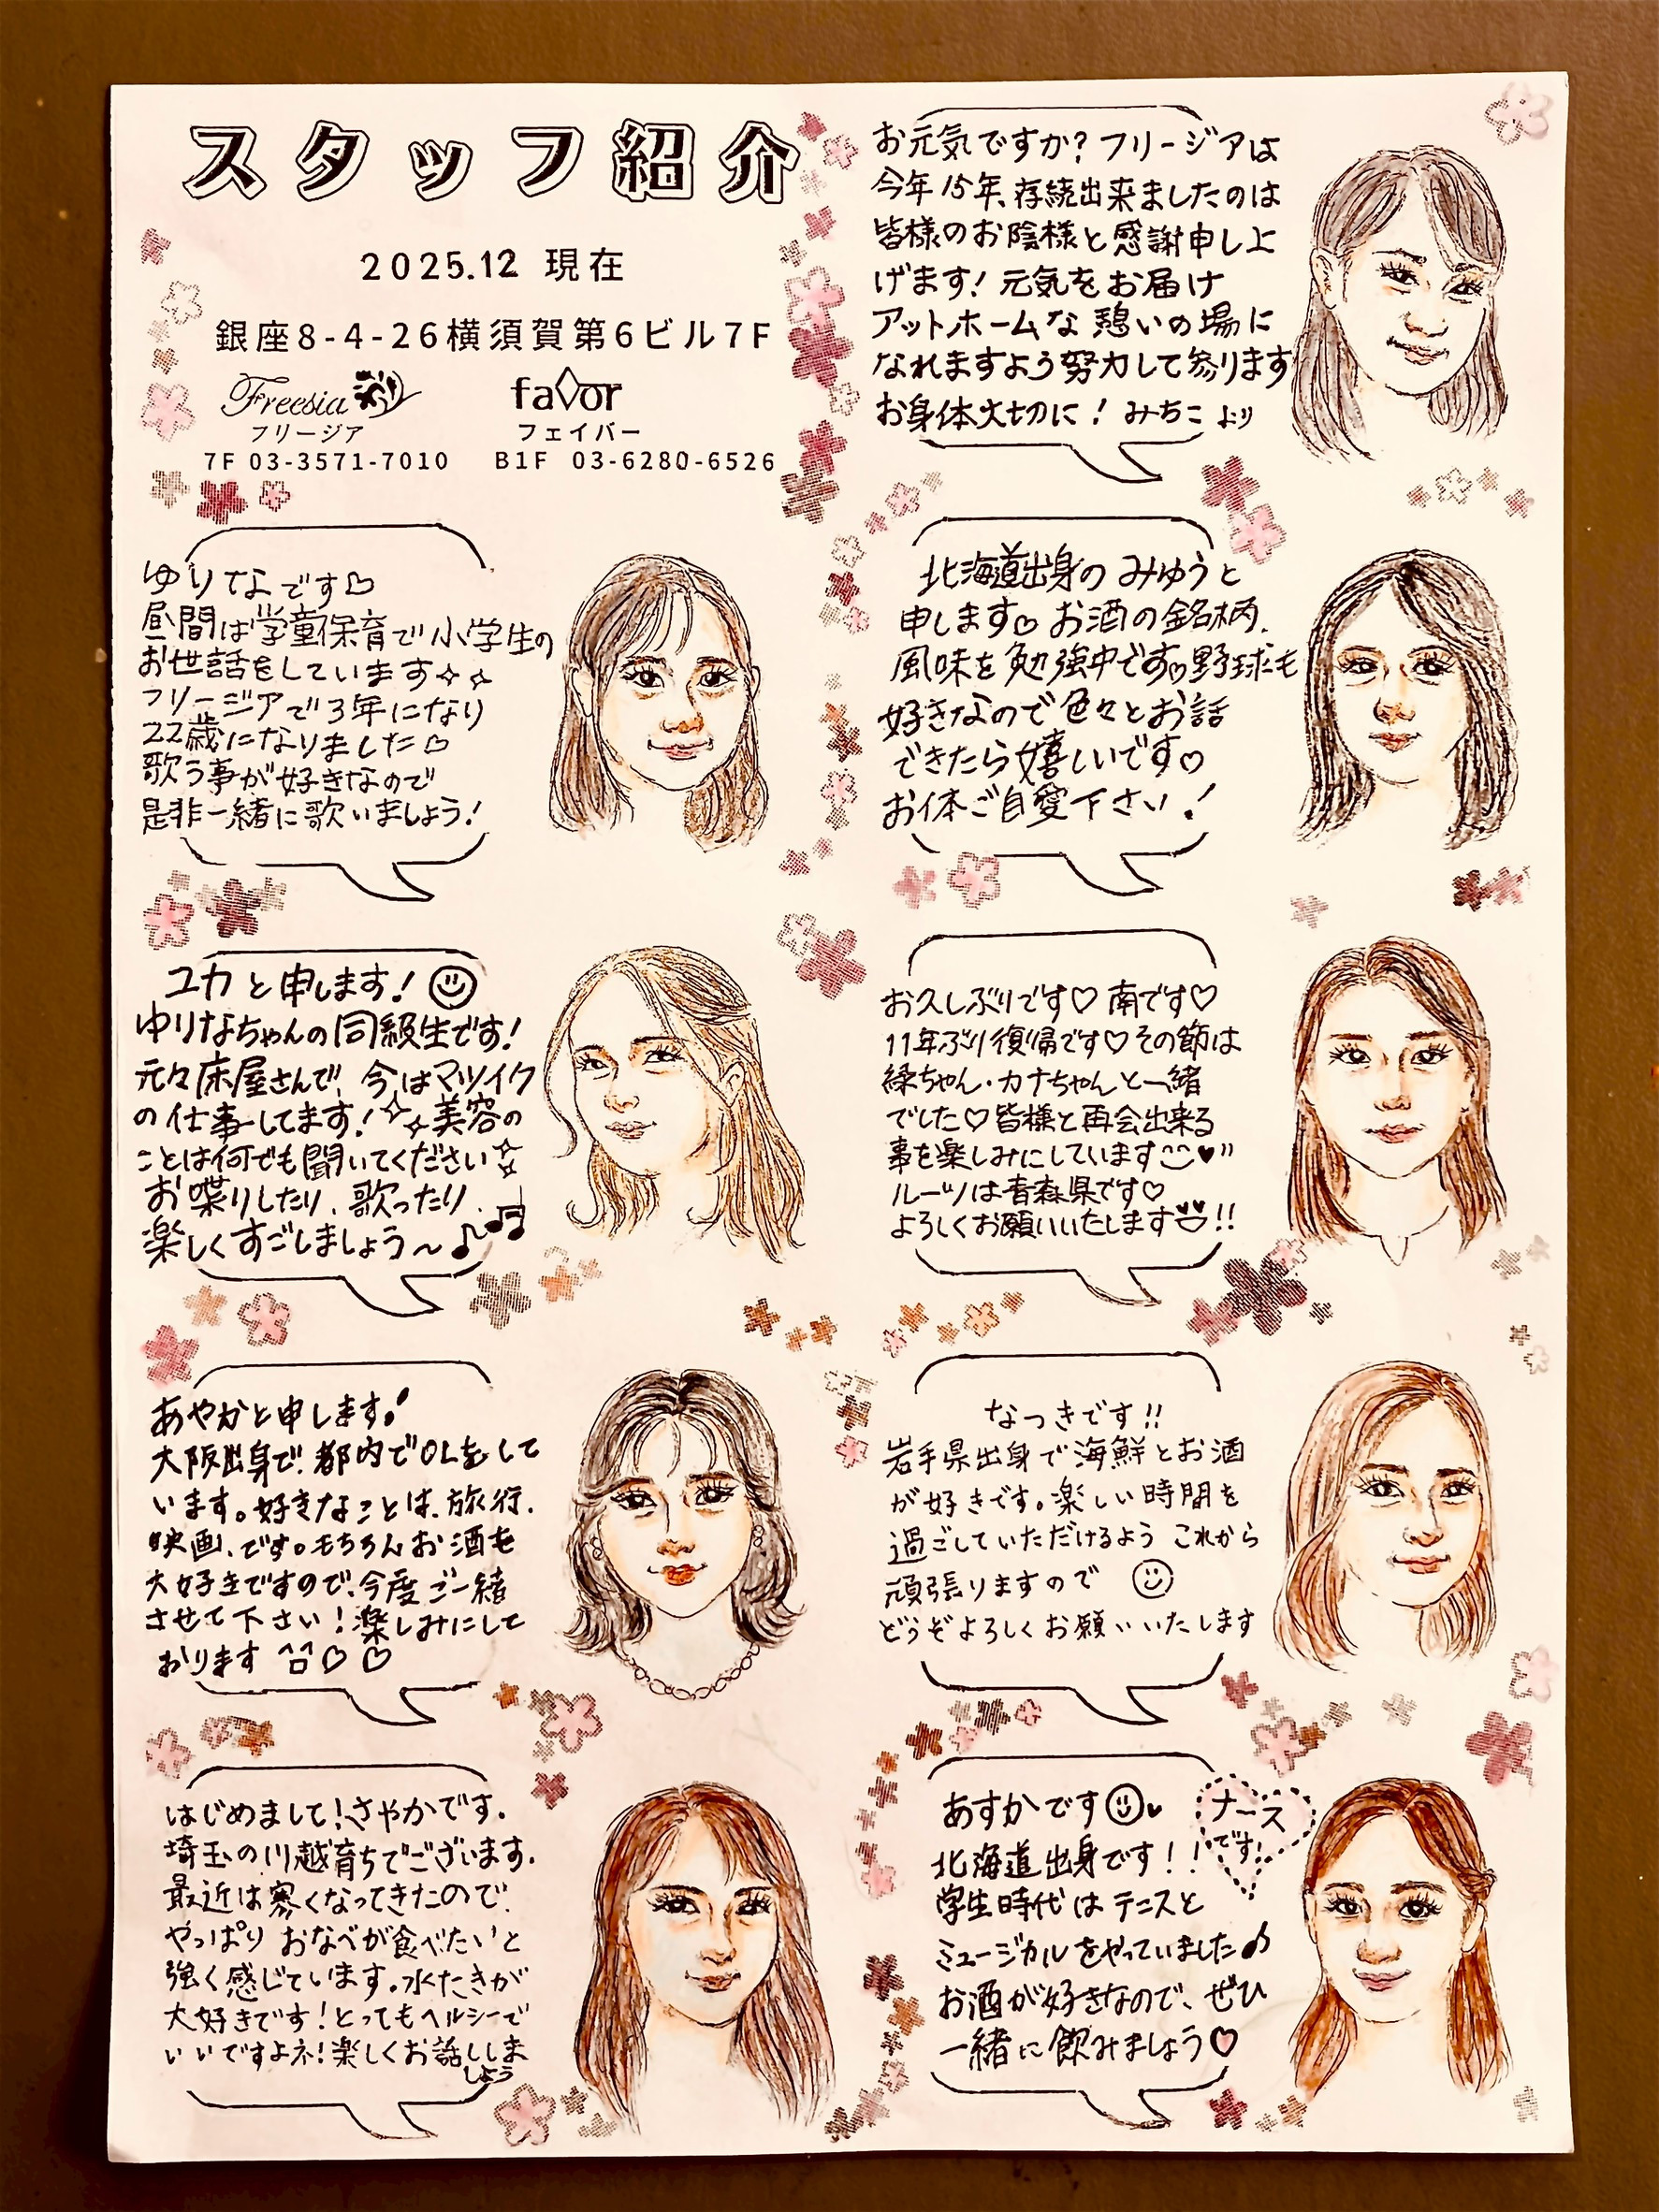 スタッフ紹介
2025.12 現在
銀座8-4-26横須賀第6ビル7F
Freesia
フリージア
7F 03-3571-7010
favor
フェイバー
B1F 03-6280-6526
お元気ですか？フリージアは
今年15年、存続出来ましたのは
皆様のお陰様と感謝申し上
げます！元気をお届け
アットホームな憩いの場に
なれますよう努力して参ります
お身体大切に！みちこより
ゆりなです♡
昼間は学童保育で小学生の
お世話をしています✧✧
フリージアで3年になり
22歳になりました♡
歌う事が好きなので
是非一緒に歌いましょう！
北海道出身のみゆうと
申します♡お酒の銘柄、
風味を勉強中です♡野球も
好きなので色々とお話
できたら嬉しいです♡
お体ご自愛下さい！
ユカと申します！☺
ゆりなちゃんの同級生です！
元々床屋さんで、今はマツイク
の仕事してます！✧✧美容の
ことは何でも聞いてください✧✧
お喋りしたり、歌ったり、
楽しくすごしましょう～♪♫
お久しぶりです♡南です♡
11年ぶり復帰です♡その節は
緑ちゃん・カナちゃんと一緒
でした♡皆様と再会出来る
事を楽しみにしています♥
ルーツは青森県です♡
よろしくお願いいたします!!
あやかと申します！
大阪出身で、都内でOLをして
います。好きなことは、旅行、
映画、です。もちろんお酒も
大好きですので、今度ご一緒
させて下さい！楽しみにして
おります ♡♡
なつきです!!
岩手県出身で海鮮とお酒
が好きです。楽しい時間を
過ごしていただけるよう これから
頑張りますので ☺
どうぞよろしくお願いいたします
はじめまして！さやかです。
埼玉の川越育ちでございます。
最近は寒くなってきたので、
やっぱり おなべが食べたいと
強く感じています。水たきが
大好きです！とってもヘルシーで
いいですよネ！楽しくお話ししま
しょう
あすかです☺♥
ナース
です！
北海道出身です！！
学生時代はテニスと
ミュージカルをやっていました♪
お酒が好きなので、ぜひ
一緒に飲みましょう♡